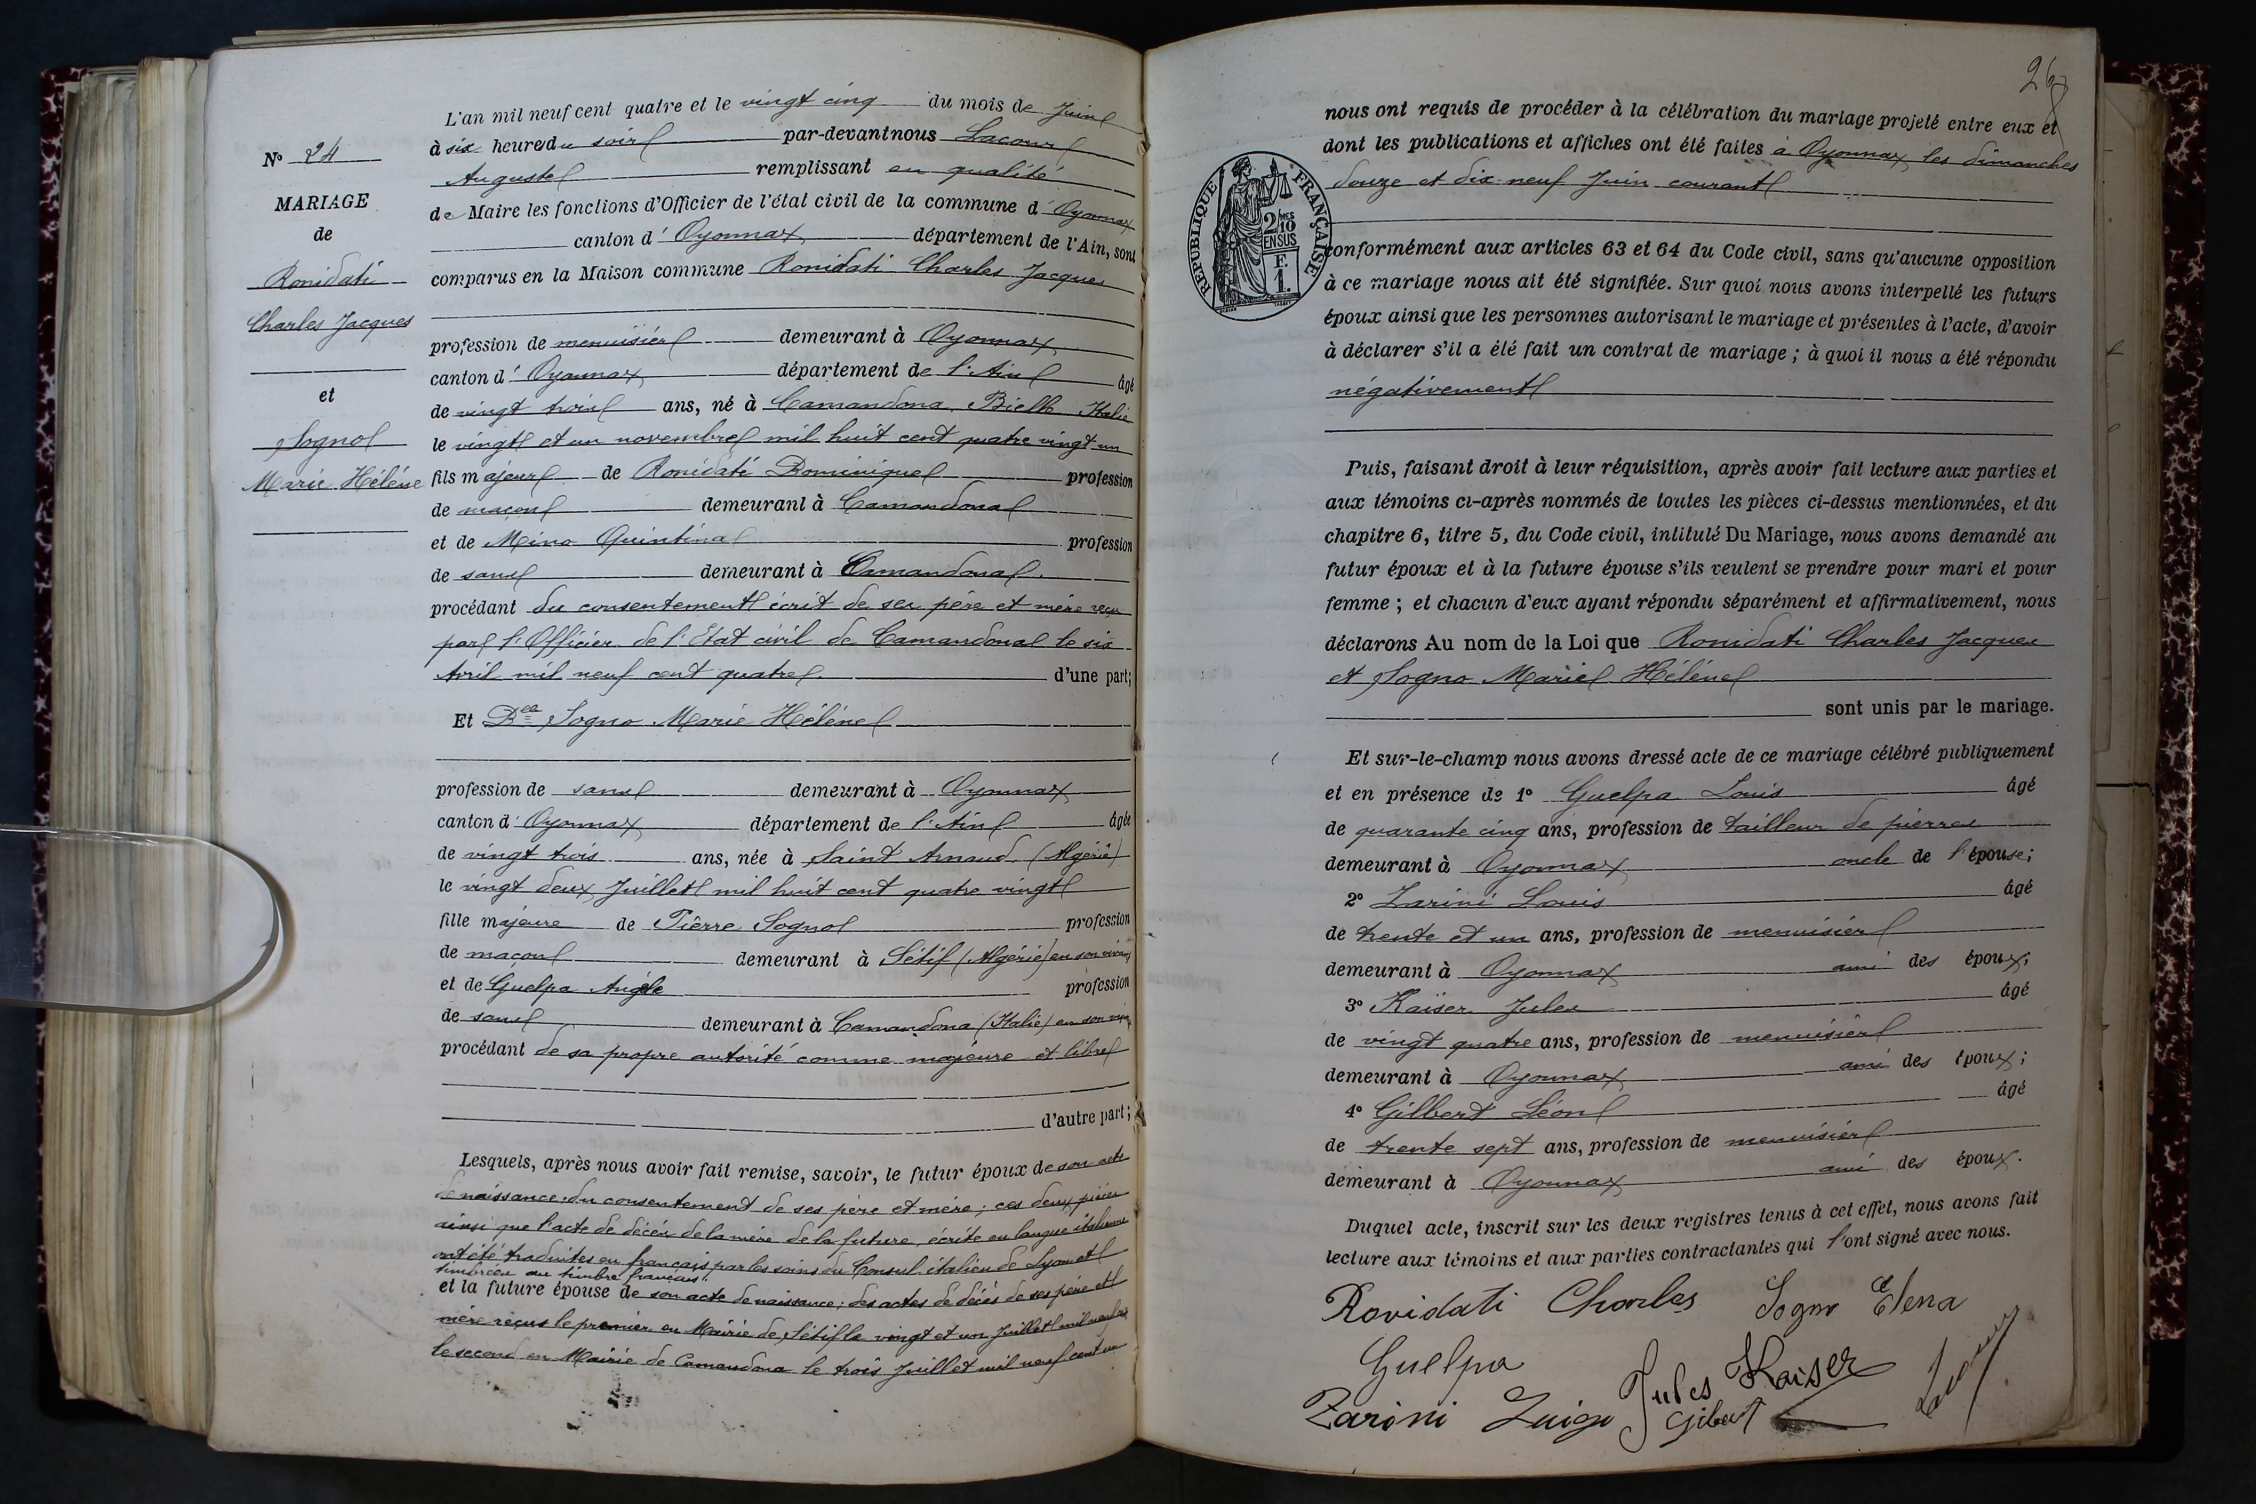 L'an mil neuf cent quatre et le vingt cinq du mois de Juin
à six heures du soir par-devant nous Lacour
Auguste remplissant en qualité
de Maire les fonctions d'Officier de l'état civil de la commune d' Oyonnax
canton d' Oyonnax département de l'Ain, sont
comparus en la Maison commune Ronidati Charles Jacques
profession de menuisier demeurant à Oyonnax
canton d' Oyonnax département de l'Ain âgé
de vingt trois ans, né à Camandona Biella Italie
le vingt et un novembre mil huit cent quatre vingt un
fils majeur de Ronidati Dominique profession
de maçon demeurant à Camandona
et de Mino Quintina profession
de sans demeurant à Camandona.
procédant du consentement écrit de ses père et mère reçu
par l'Officier de l'Etat civil de Camandona le six
Avril mil neuf cent quatre. d'une part;
Et Dlle Sogno Marie Hélène
profession de sans demeurant à Oyonnax
canton d' Oyonnax département de l'Ain âgée
de vingt trois ans, née à Saint Arnaud (Algérie)
le vingt deux Juillet mil huit cent quatre vingt
fille majeure de Pierre Sogno profession
de maçon demeurant à Sétif (Algérie) en son vivant
et de Guelpa Angèle profession
de sans demeurant à Camandona (Italie) en son vivant
procédant de sa propre autorité comme majeure et libre
d'autre part;
Lesquels, après nous avoir fait remise, savoir, le futur époux de son acte
de naissance; du consentement de ses père et mère; ces deux pièces
ainsi que l'acte de décès de la mère de la future, écrits en langue italienne
ont été traduites en français par les soins du Consul italien de Lyon et
timbrées au timbre français.
et la future épouse de son acte de naissance; des actes de décès de ses père et
mère reçus le premier en Mairie de Sétif le vingt et un Juillet mil neuf
le second en Mairie de Camandona le trois Juillet mil neuf cent un
N° 24
MARIAGE
de
Ronidati
Charles Jacques
et
Sogno
Marie Hélène
nous ont requis de procéder à la célébration du mariage projeté entre eux et
dont les publications et affiches ont été faites à Oyonnax les dimanches
douze et dix-neuf Juin courant
RÉPUBLIQUE FRANÇAISE
2/10 MES
EN SUS
F.
1.
conformément aux articles 63 et 64 du Code civil, sans qu'aucune opposition
à ce mariage nous ait été signifiée. Sur quoi nous avons interpellé les futurs
époux ainsi que les personnes autorisant le mariage et présentes à l'acte, d'avoir
à déclarer s'il a été fait un contrat de mariage; à quoi il nous a été répondu
négativement
Puis, faisant droit à leur réquisition, après avoir fait lecture aux parties et
aux témoins ci-après nommés de toutes les pièces ci-dessus mentionnées, et du
chapitre 6, titre 5, du Code civil, intitulé Du Mariage, nous avons demandé au
futur époux et à la future épouse s'ils veulent se prendre pour mari et pour
femme; et chacun d'eux ayant répondu séparément et affirmativement, nous
déclarons Au nom de la Loi que Ronidati Charles Jacques
et Sogno Marie Hélène
sont unis par le mariage.
Et sur-le-champ nous avons dressé acte de ce mariage célébré publiquement
et en présence de 1° Guelpa Louis âgé
de quarante cinq ans, profession de tailleur de pierres
demeurant à Oyonnax oncle de l'épouse;
2° Zarini Louis âgé
de trente et un ans, profession de menuisier
demeurant à Oyonnax ami des époux;
3° Kaïser Jules âgé
de vingt quatre ans, profession de menuisier
demeurant à Oyonnax ami des époux;
4° Gilbert Léon âgé
de trente sept ans, profession de menuisier
demeurant à Oyonnax ami des époux.
Duquel acte, inscrit sur les deux registres tenus à cet effet, nous avons fait
lecture aux témoins et aux parties contractantes qui l'ont signé avec nous.
Rovidati Charles Sogno Elena
Guelpa Jules Kaiser
Zarini Luigi Gilbert